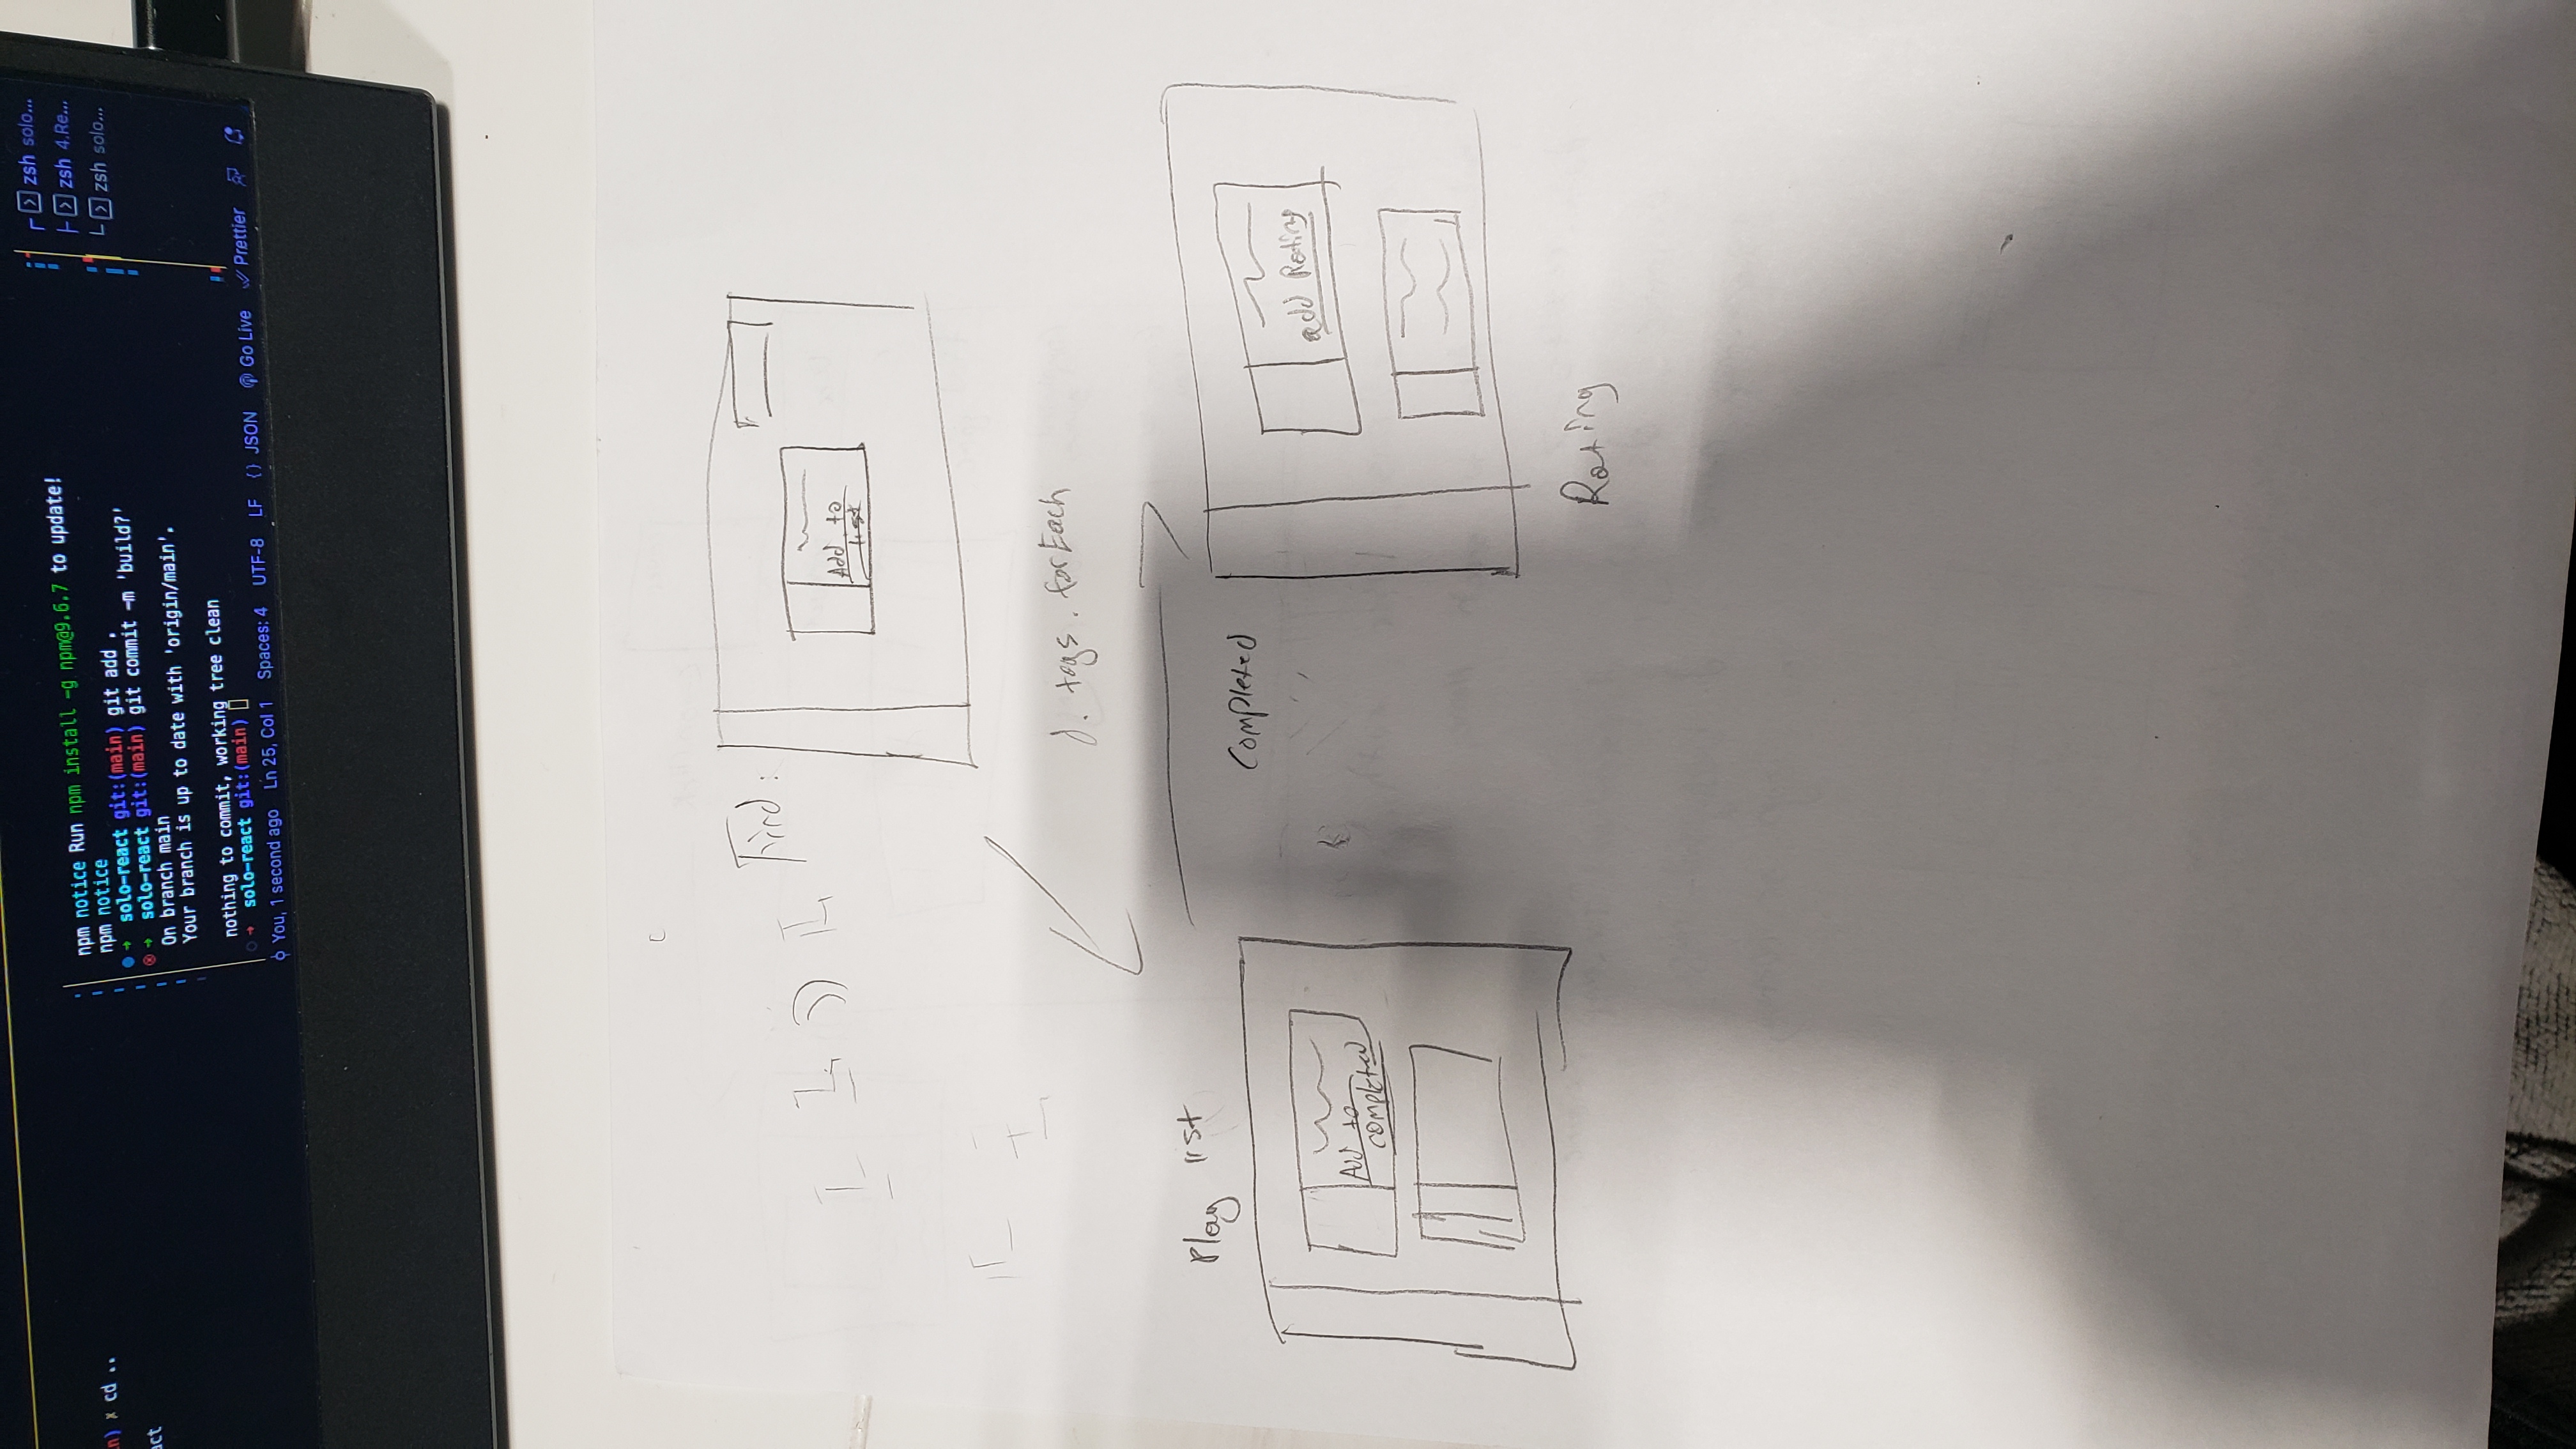 cd ..
npm notice Run npm install -g npm@9.6.7 to update!
npm notice
→ solo-react git:(main) git add .
→ solo-react git:(main) git commit -m 'build?'
On branch main
Your branch is up to date with 'origin/main'.
nothing to commit, working tree clean
→ solo-react git:(main)
You, 1 second ago Ln 25, Col 1 Spaces: 4 UTF-8 LF {} JSON Go Live Prettier
zsh solo...
zsh 4.Re...
zsh solo...
Find:
Add to
list
d. tags. forEach
Play list
Add to
completed
Completed
add Rating
Rating